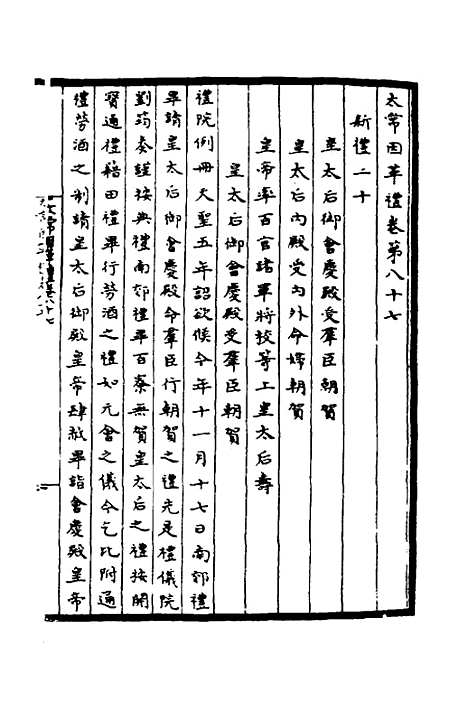 太常因革禮卷第八十七
新禮二十
皇太后御會慶殿受羣臣朝賀
皇太后內殿受內外命婦朝賀
皇帝率百官諸軍將校等上皇太后壽
皇太后御會慶殿受羣臣朝賀
禮院例冊天聖五年詔欲候今年十一月十七日南郊禮
畢請皇太后御會慶殿命羣臣行朝賀之禮先是禮儀院
劉筠奏謹按典禮南郊禮畢百寮無賀皇太后之禮按開
寳通禮籍田禮畢行勞酒之禮如元會之儀今乞比附通
禮勞酒之制請皇太后御殿皇帝肆赦畢詣會慶殿皇帝